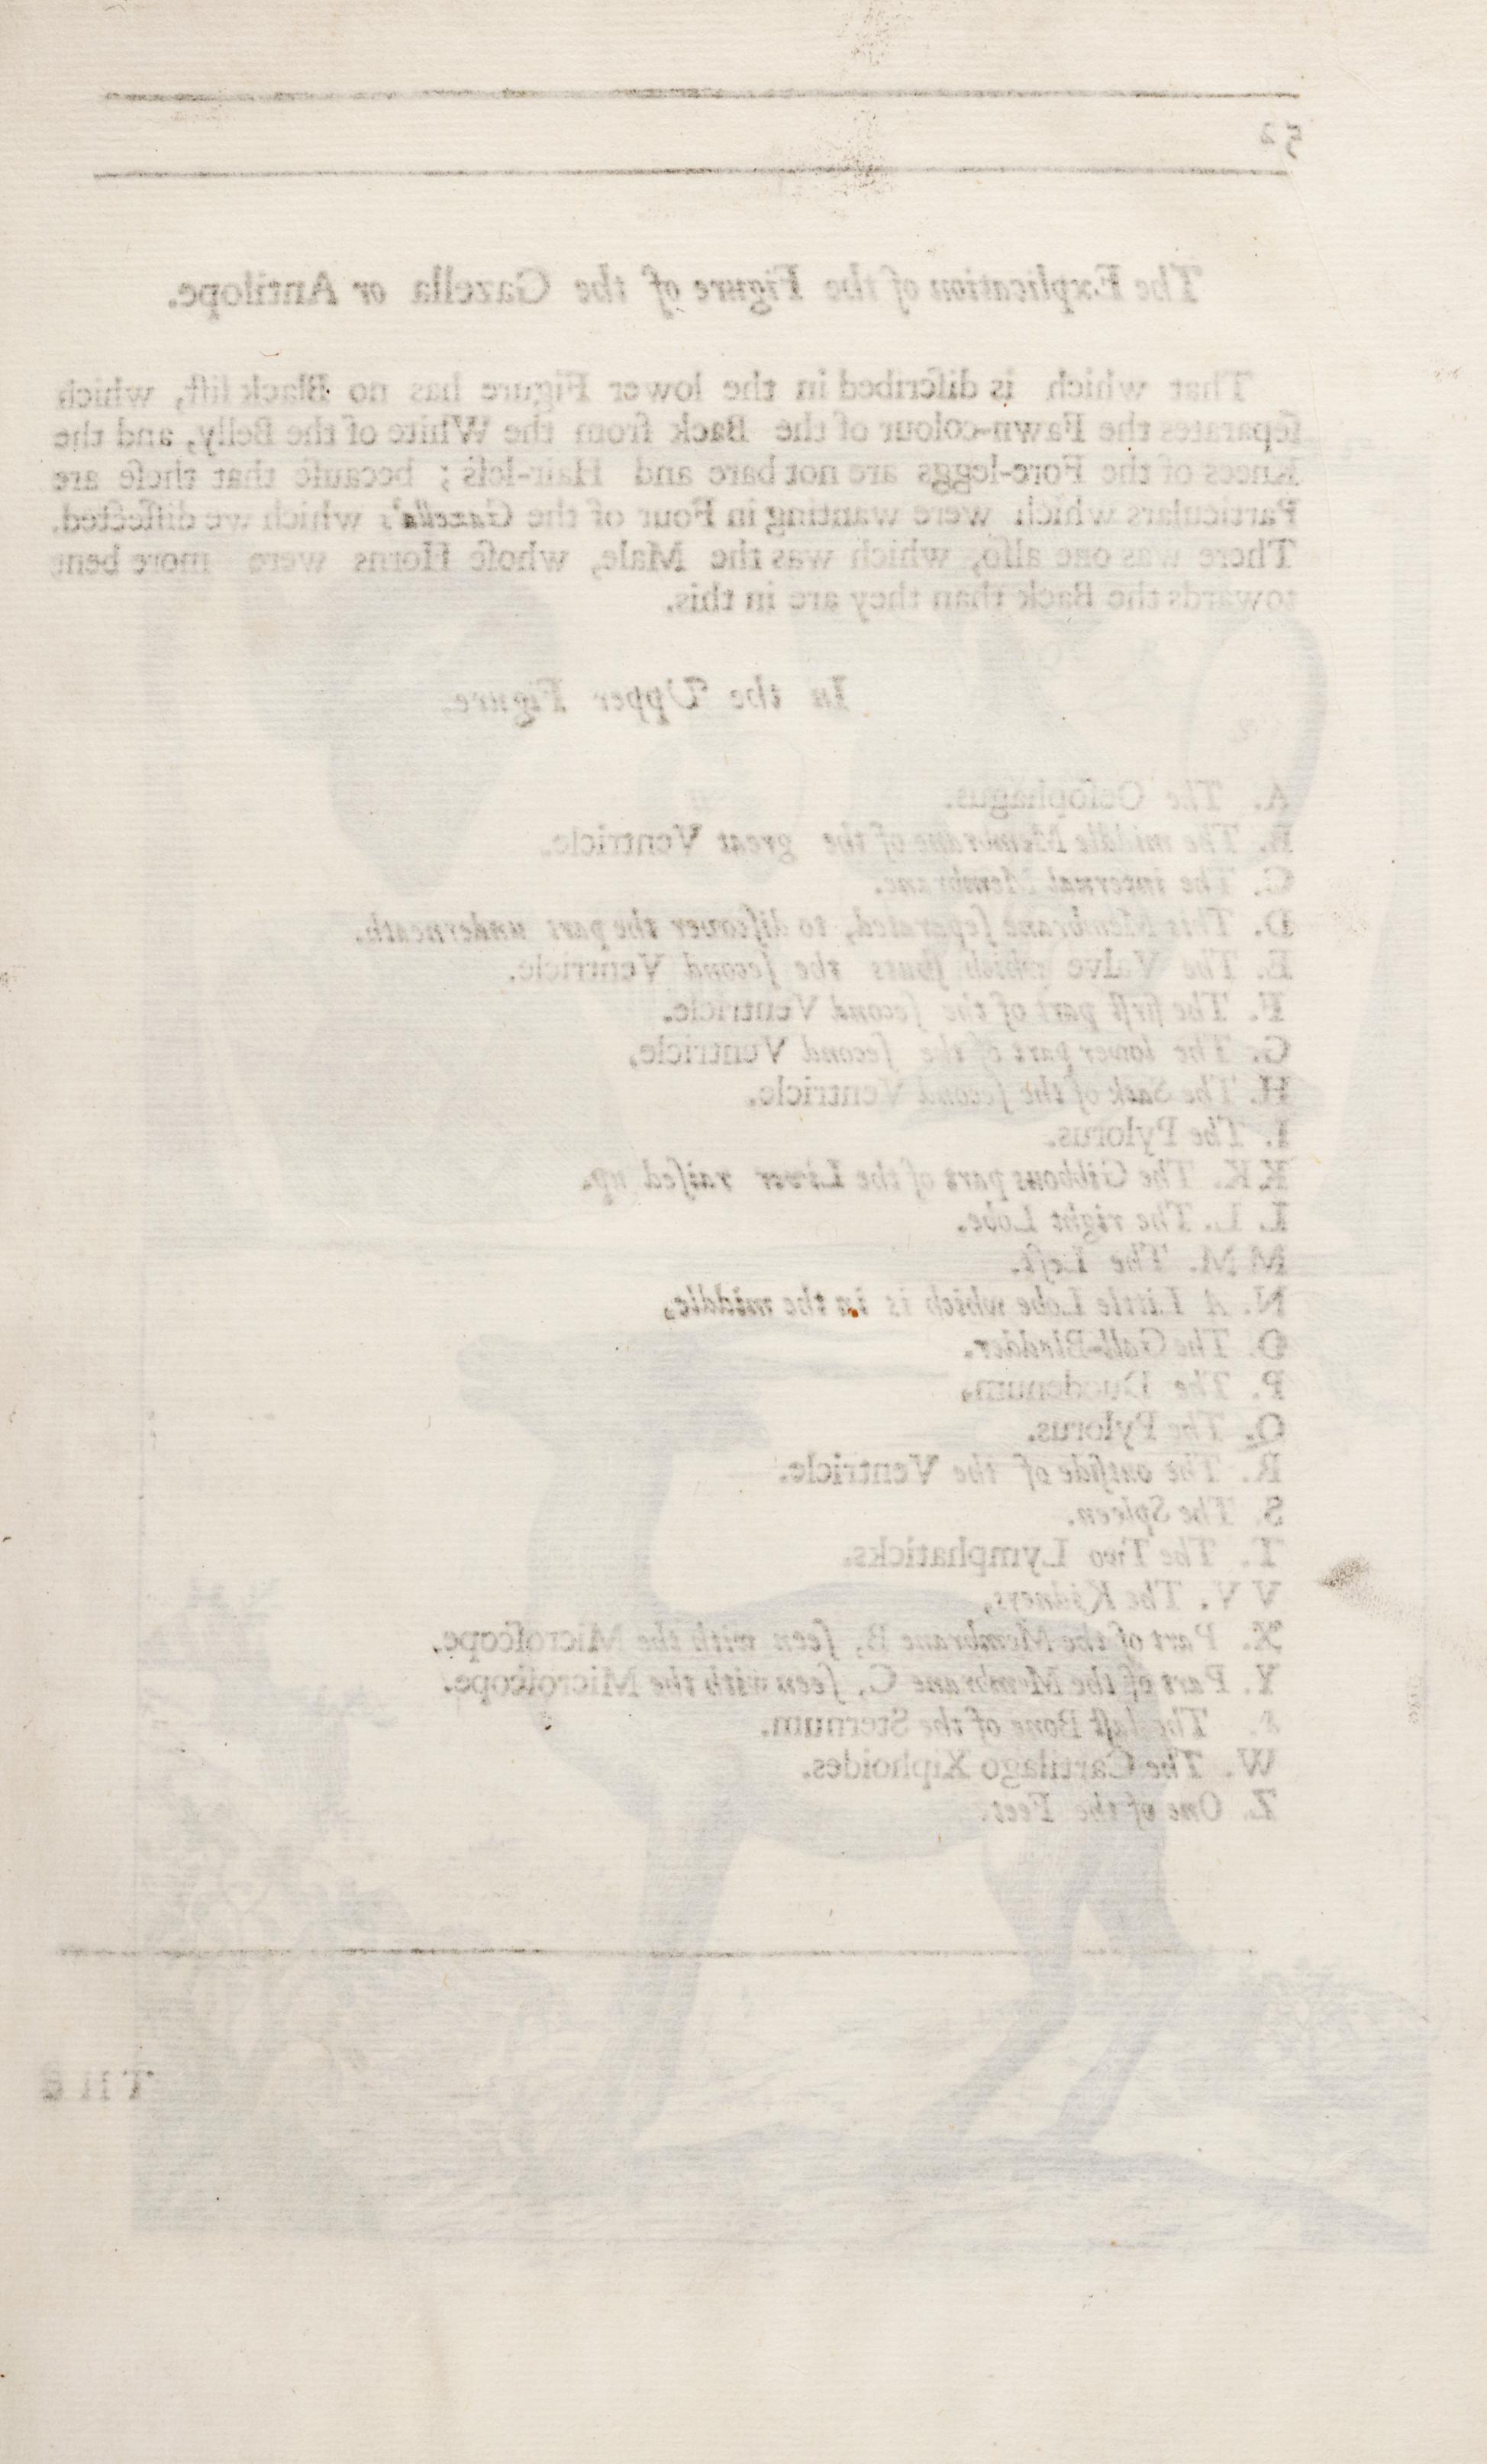 52
The Explication of the Figure of the Gazella or Antilope.
That which is diſcribed in the lower Figure has no Black liſt, which
ſeparates the Fawn-colour of the Back from the White of the Belly, and the
Knees of the Fore-leggs are not bare and Hair-leſs; becauſe that theſe are
Particulars which were wanting in Four of the Gazella's which we diſſected.
There was one alſo, which was the Male, whoſe Horns were more bent
towards the Back than they are in this.
In the Upper Figure.
A. The Oeſophagus.
B. The middle Membrane of the great Ventricle.
C. The internal Membrane.
D. This Membrane ſeparated, to diſcover the part underneath.
E. The Valve which ſhuts the ſecond Ventricle.
F. The firſt part of the ſecond Ventricle.
G. The lower part of the ſecond Ventricle,
H. The Sack of the ſecond Ventricle.
I. The Pylorus.
K K. The Gibbous part of the Liver raiſed up.
L L. The right Lobe.
M M. The Left.
N. A Little Lobe which is in the middle,
O. The Gall-Bladder.
P. The Duodenum,
Q. The Pylorus.
R. The outſide of the Ventricle.
S. The Spleen.
T. The Two Lymphaticks.
V V. The Kidneys,
X. Part of the Membrane B, ſeen with the Microſcope.
Y. Part of the Membrane C, ſeen with the Microſcope.
The laſt Bone of the Sternum.
W. The Cartilago Xiphoides.
Z. One of the Feet.
THE